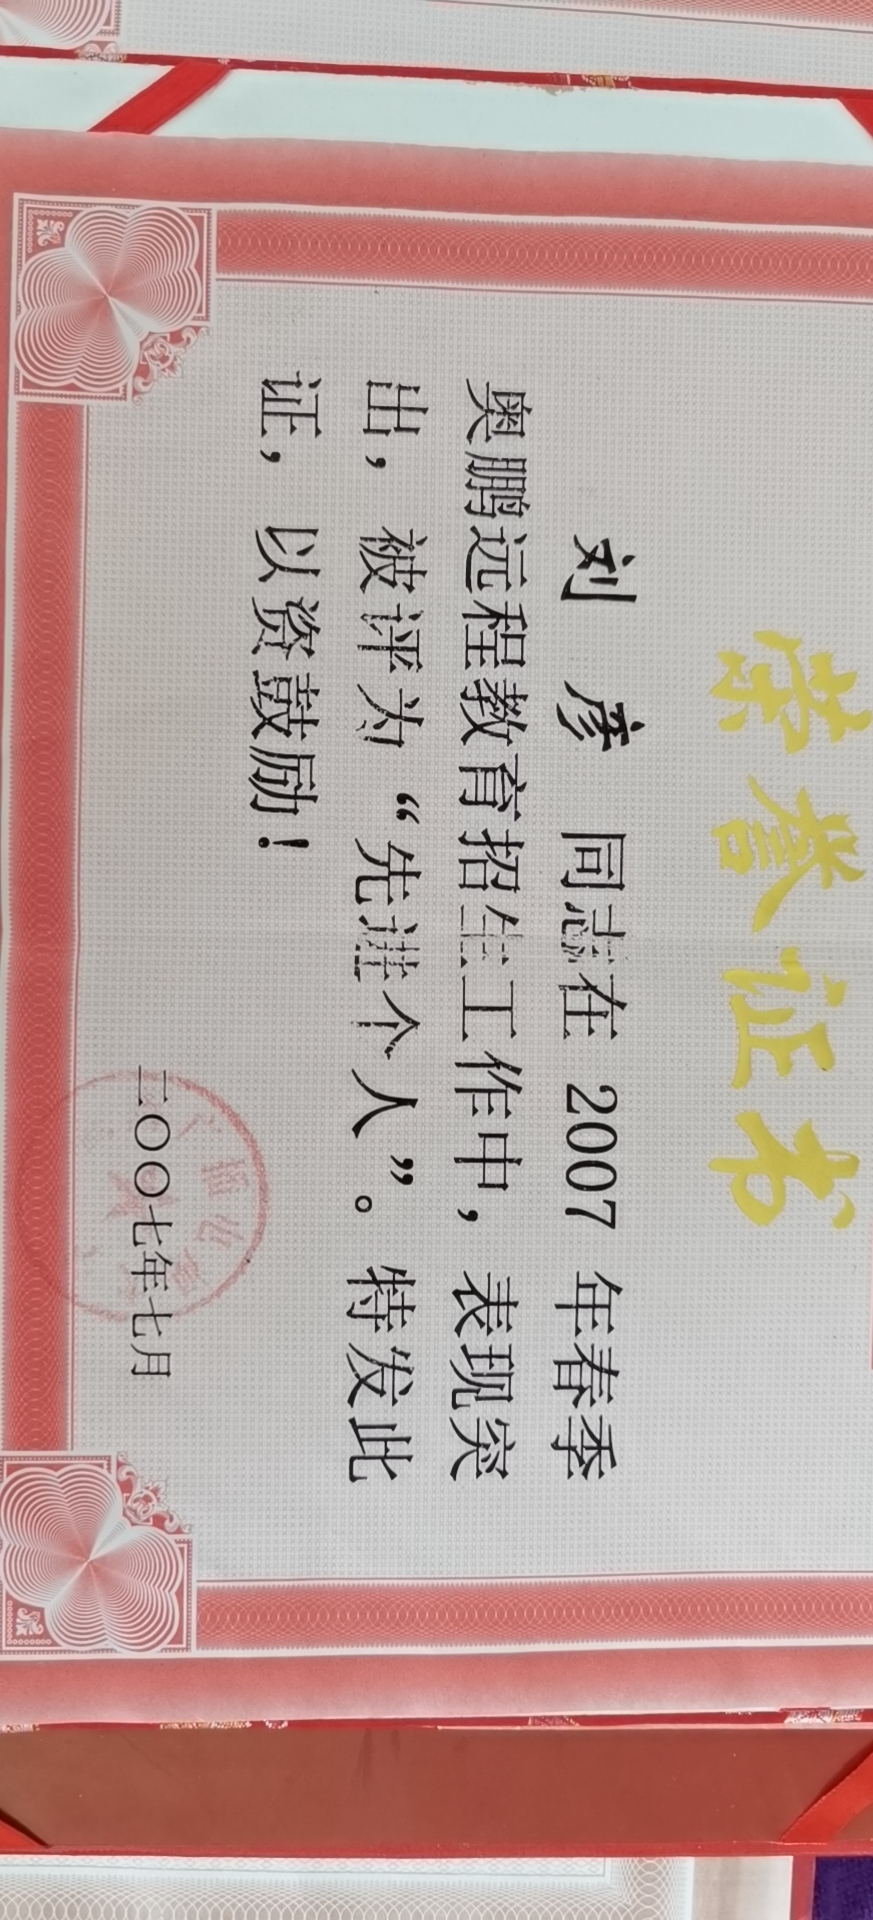 荣誉证书
刘彦 同志在 2007 年春季
奥鹏远程教育招生工作中，表现突
出，被评为“先进个人”。特发此
证，以资鼓励！
二〇〇七年七月